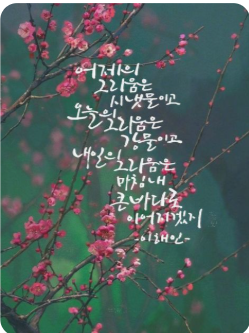 어제의
그리움은
시냇물이고
오늘의 그리움은
강물이고
내일의 그리움은
마침내
큰 바다로
이어지겠지
-이해인-